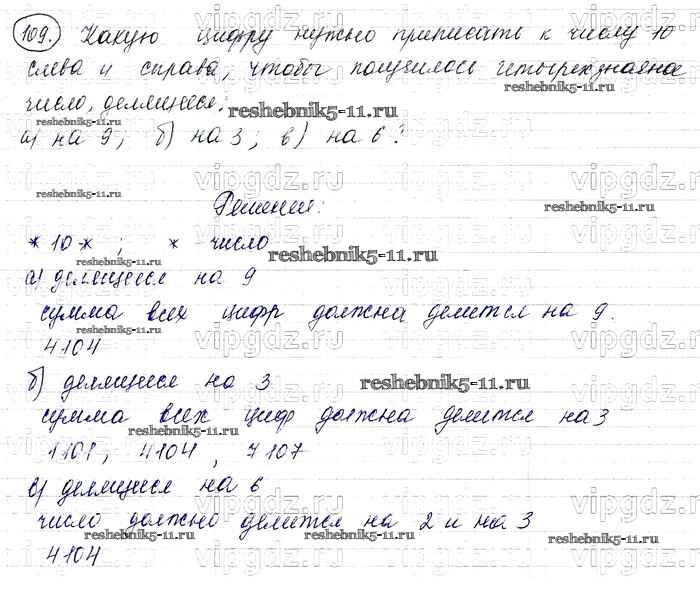 109. Какую цифру нужно приписать к числу 10
слева и справа, чтобы получилось четырехзначное
число, делящееся:
reshebnik5-11.ru
а) на 9; б) на 3; в) на 6?
Решение:
*10*; * число
reshebnik5-11.ru
а) делящееся на 9
сумма всех цифр должна делится на 9.
4104
б) делящееся на 3
reshebnik5-11.ru
сумма всех цифр должна делится на 3
1101, 4104, 7107
в) делящееся на 6
число должно делится на 2 и на 3
4104
reshebnik5-11.ru
vipgdz.ru